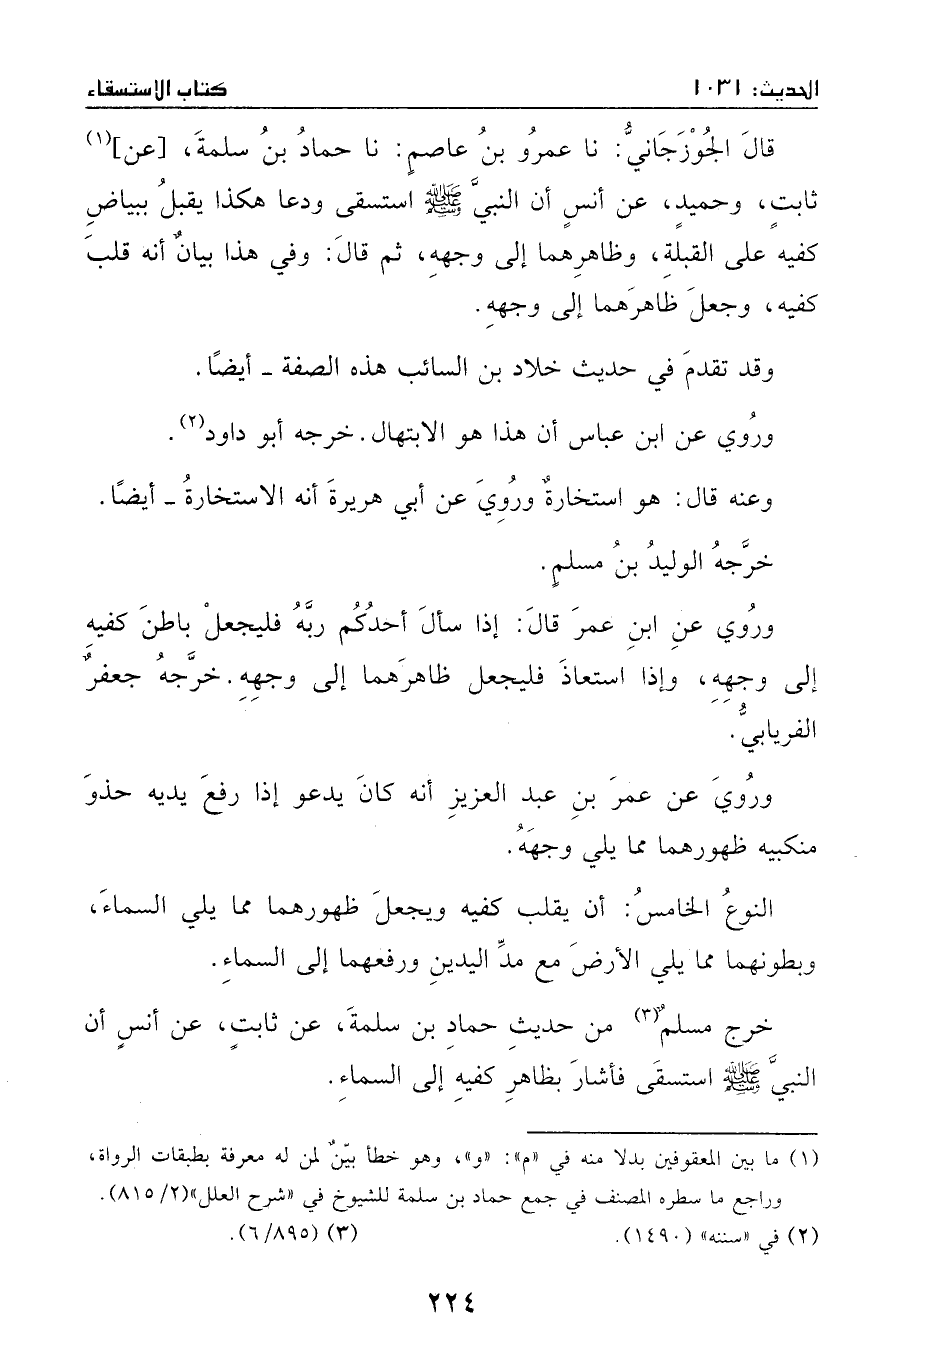 الحديث: ١٠٣١
كتاب الاستسقاء
قالَ الجُوْزَجَانيُّ: نا عمرُو بنُ عاصمٍ: نا حمادُ بنُ سلمةَ، [عن](١)
ثابتٍ، وحميدٍ، عن أنسٍ أن النبيَّ ﷺ استسقى ودعا هكذا يقبلُ ببياضِ
كفيه على القبلةِ، وظاهرِهما إلى وجههِ، ثم قالَ: وفي هذا بيانٌ أنه قلبَ
كفيه، وجعلَ ظاهرَهما إلى وجههِ.
وقد تقدمَ في حديث خلاد بن السائب هذه الصفة ـ أيضًا.
ورُوي عن ابن عباس أن هذا هو الابتهال. خرجه أبو داود(٢).
وعنه قال: هو استخارةٌ ورُوِيَ عن أبي هريرةَ أنه الاستخارةُ ـ أيضًا.
خرَّجهُ الوليدُ بنُ مسلمٍ.
ورُوي عنِ ابنِ عمرَ قالَ: إذا سألَ أحدُكُم ربَّهُ فليجعلْ باطنَ كفيهِ
إلى وجهِهِ، وإذا استعاذَ فليجعل ظاهرَهما إلى وجهِهِ. خرَّجهُ جعفرٌ
الفريابيُّ.
ورُويَ عن عمرَ بنِ عبد العزيزِ أنه كانَ يدعو إذا رفعَ يديه حذوَ
منكبيه ظهورهما مما يلي وجهَهُ.
النوعُ الخامسُ: أن يقلب كفيه ويجعلَ ظهورهما مما يلي السماءَ،
وبطونهما مما يلي الأرضَ مع مدِّ اليدينِ ورفعهما إلى السماءِ.
خرج مسلمٌ(٣) من حديثِ حمادِ بن سلمةَ، عن ثابتٍ، عن أنسٍ أن
النبيَّ ﷺ استسقَى فأشارَ بظاهرِ كفيهِ إلى السماءِ.
(١) ما بين المعقوفين بدلا منه في «م»: «و»، وهو خطأ بيّنٌ لمن له معرفة بطبقات الرواة،
وراجع ما سطره المصنف في جمع حماد بن سلمة للشيوخ في «شرح العلل»(٢/ ٨١٥).
(٢) في «سننه» (١٤٩٠).
(٣) (٦/٨٩٥).
٢٢٤